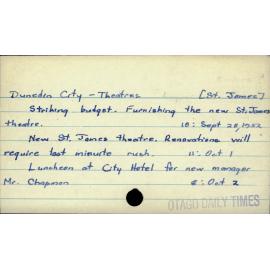 Dunedin City - Theatres [St. James]
Striking budget. Furnishing the new St. James
theatre. 10: Sept 20, 1952
New St. James theatre. Renovations will
require last minute rush. 11: Oct 1
Luncheon at City Hotel for new manager
Mr. Chapman 6: Oct 2
OTAGO DAILY TIMES